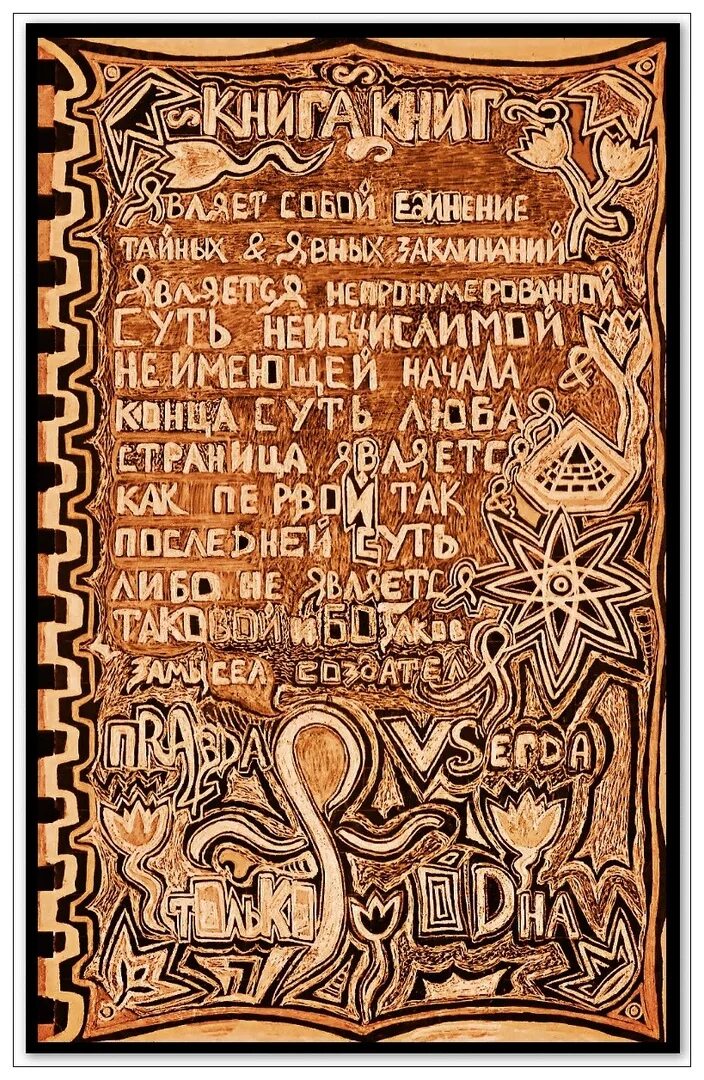 КНИГА КНИГ
ЯВЛЯЕТ СОБОЙ ЕДИНЕНИЕ
ТАЙНЫХ & ЯВНЫХ ЗАКЛИНАНИЙ
ЯВЛЯЕТСЯ НЕПРОНУМЕРОВАННОЙ
СУТЬ НЕИСЧИСЛИМОЙ
НЕ ИМЕЮЩЕЙ НАЧАЛА &
КОНЦА СУТЬ ЛЮБАЯ
СТРАНИЦА ЯВЛЯЕТСЯ
КАК ПЕРВОЙ ТАК &
ПОСЛЕДНЕЙ СУТЬ
ЛИБО НЕ ЯВЛЯЕТСЯ
ТАКОВОЙ ИБО ТАКОВ
ЗАМЫСЕЛ СОЗДАТЕЛЯ
ПRAВDA VSEГDA
ТОЛЬКО ОDНА